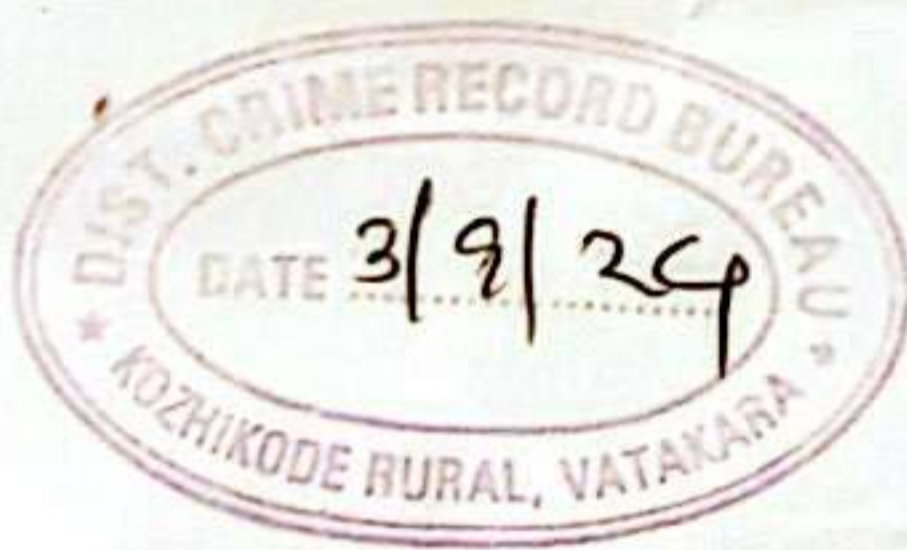 ★ DIST. CRIME RECORD BUREAU ★
DATE 3/9/24
KOZHIKODE RURAL, VATAKARA